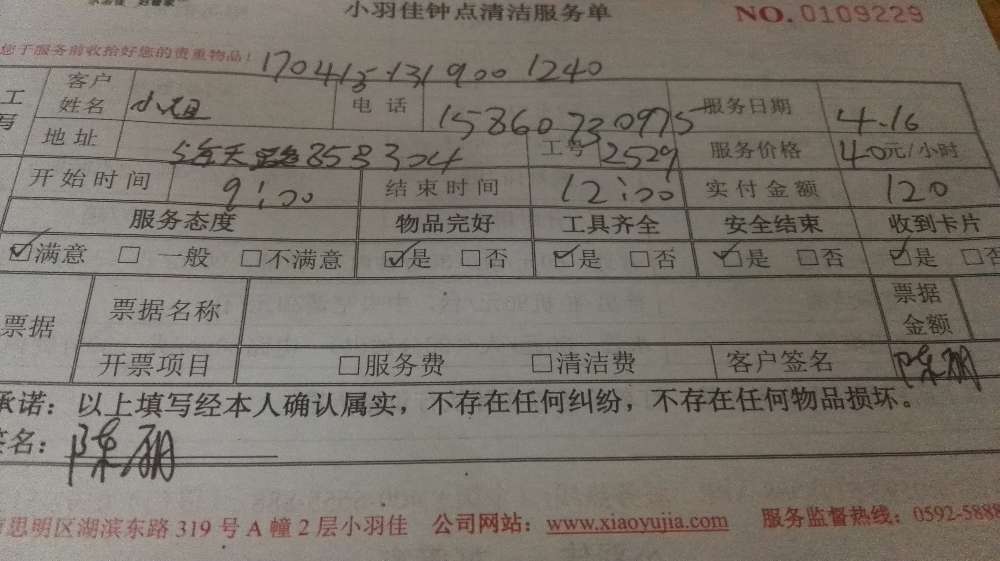 小羽佳钟点清洁服务单 NO.0109229
您于服务前收拾好您的贵重物品!
1704151319001240
工 客户姓名 小姐 电话 15860730975 服务日期 4.16
写 地址 853304 工号 2529 服务价格 40元/小时
开始时间 9:00 结束时间 12:00 实付金额 120
服务态度 物品完好 工具齐全 安全结束 收到卡片
☑满意 □一般 □不满意 ☑是 □否 ☑是 □否 ☑是 □否 ☑是 □否
票据 票据名称 票据金额
开票项目 □服务费 □清洁费 客户签名 陈明
承诺：以上填写经本人确认属实，不存在任何纠纷，不存在任何物品损坏。
签名：陈明
思明区湖滨东路 319 号 A 幢 2 层小羽佳 公司网站：www.xiaoyujia.com 服务监督热线：0592-5888